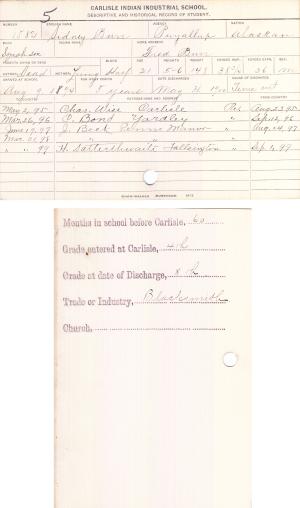 5
CARLISLE INDIAN INDUSTRIAL SCHOOL.
DESCRIPTIVE AND HISTORICAL RECORD OF STUDENT.
NUMBER ENGLISH NAME AGENCY NATION
Sidney Burr Puyallup Alaskan
INDIAN NAME HOME ADDRESS
Fred Burr
Dead Living Half 21 5-6 143 M
Aug 9, 1894 5 years Time out
May 2, 95 Chas. Wise Carlisle Pa Aug. 23, 95
Mar. 26, 96 C. Bond Yardley " Sep. 12, 96
June 17, 97 J. Beck Penns Manor " Aug. 24, 97
Mar. 98 " " "
" " 99 H. Satterthwaite Fallsington " Sep. 99
Months in school before Carlisle, 60
Grade entered at Carlisle, 4th
Grade at date of Discharge, 8th
Trade or Industry, Blacksmith
Church,